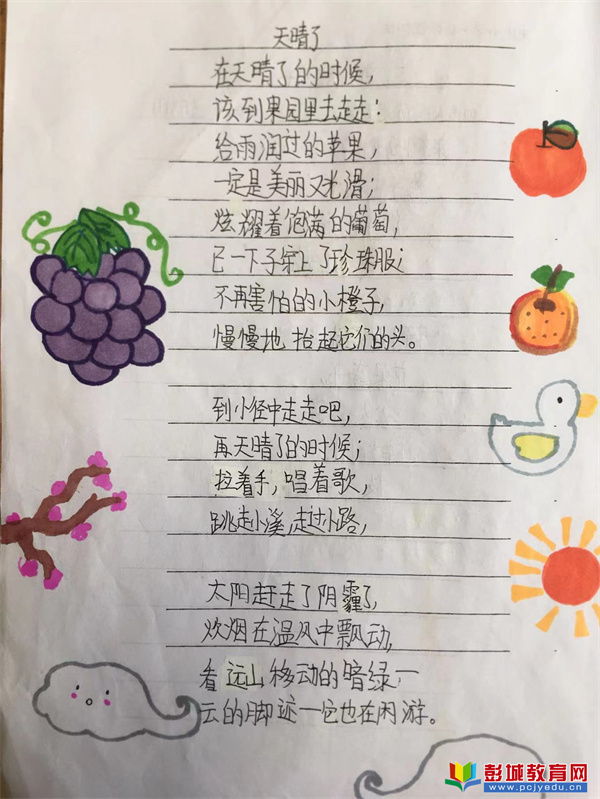 天晴了
在天晴了的时候，
该到果园里去走走：
给雨润过的苹果，
一定是美丽又光滑；
炫耀着饱满的葡萄，
已一下子穿上了珍珠服；
不再害怕的小橙子，
慢慢地抬起它们的头。
到小径中走走吧，
再天晴了的时候；
拉着手，唱着歌，
跳走小溪，越过小路，
太阳赶走了阴霾了，
炊烟在温风中飘动，
看远山移动的暗绿，一
云的脚迹一它也在闲游。
彭城教育网
www.pcjyedu.cn